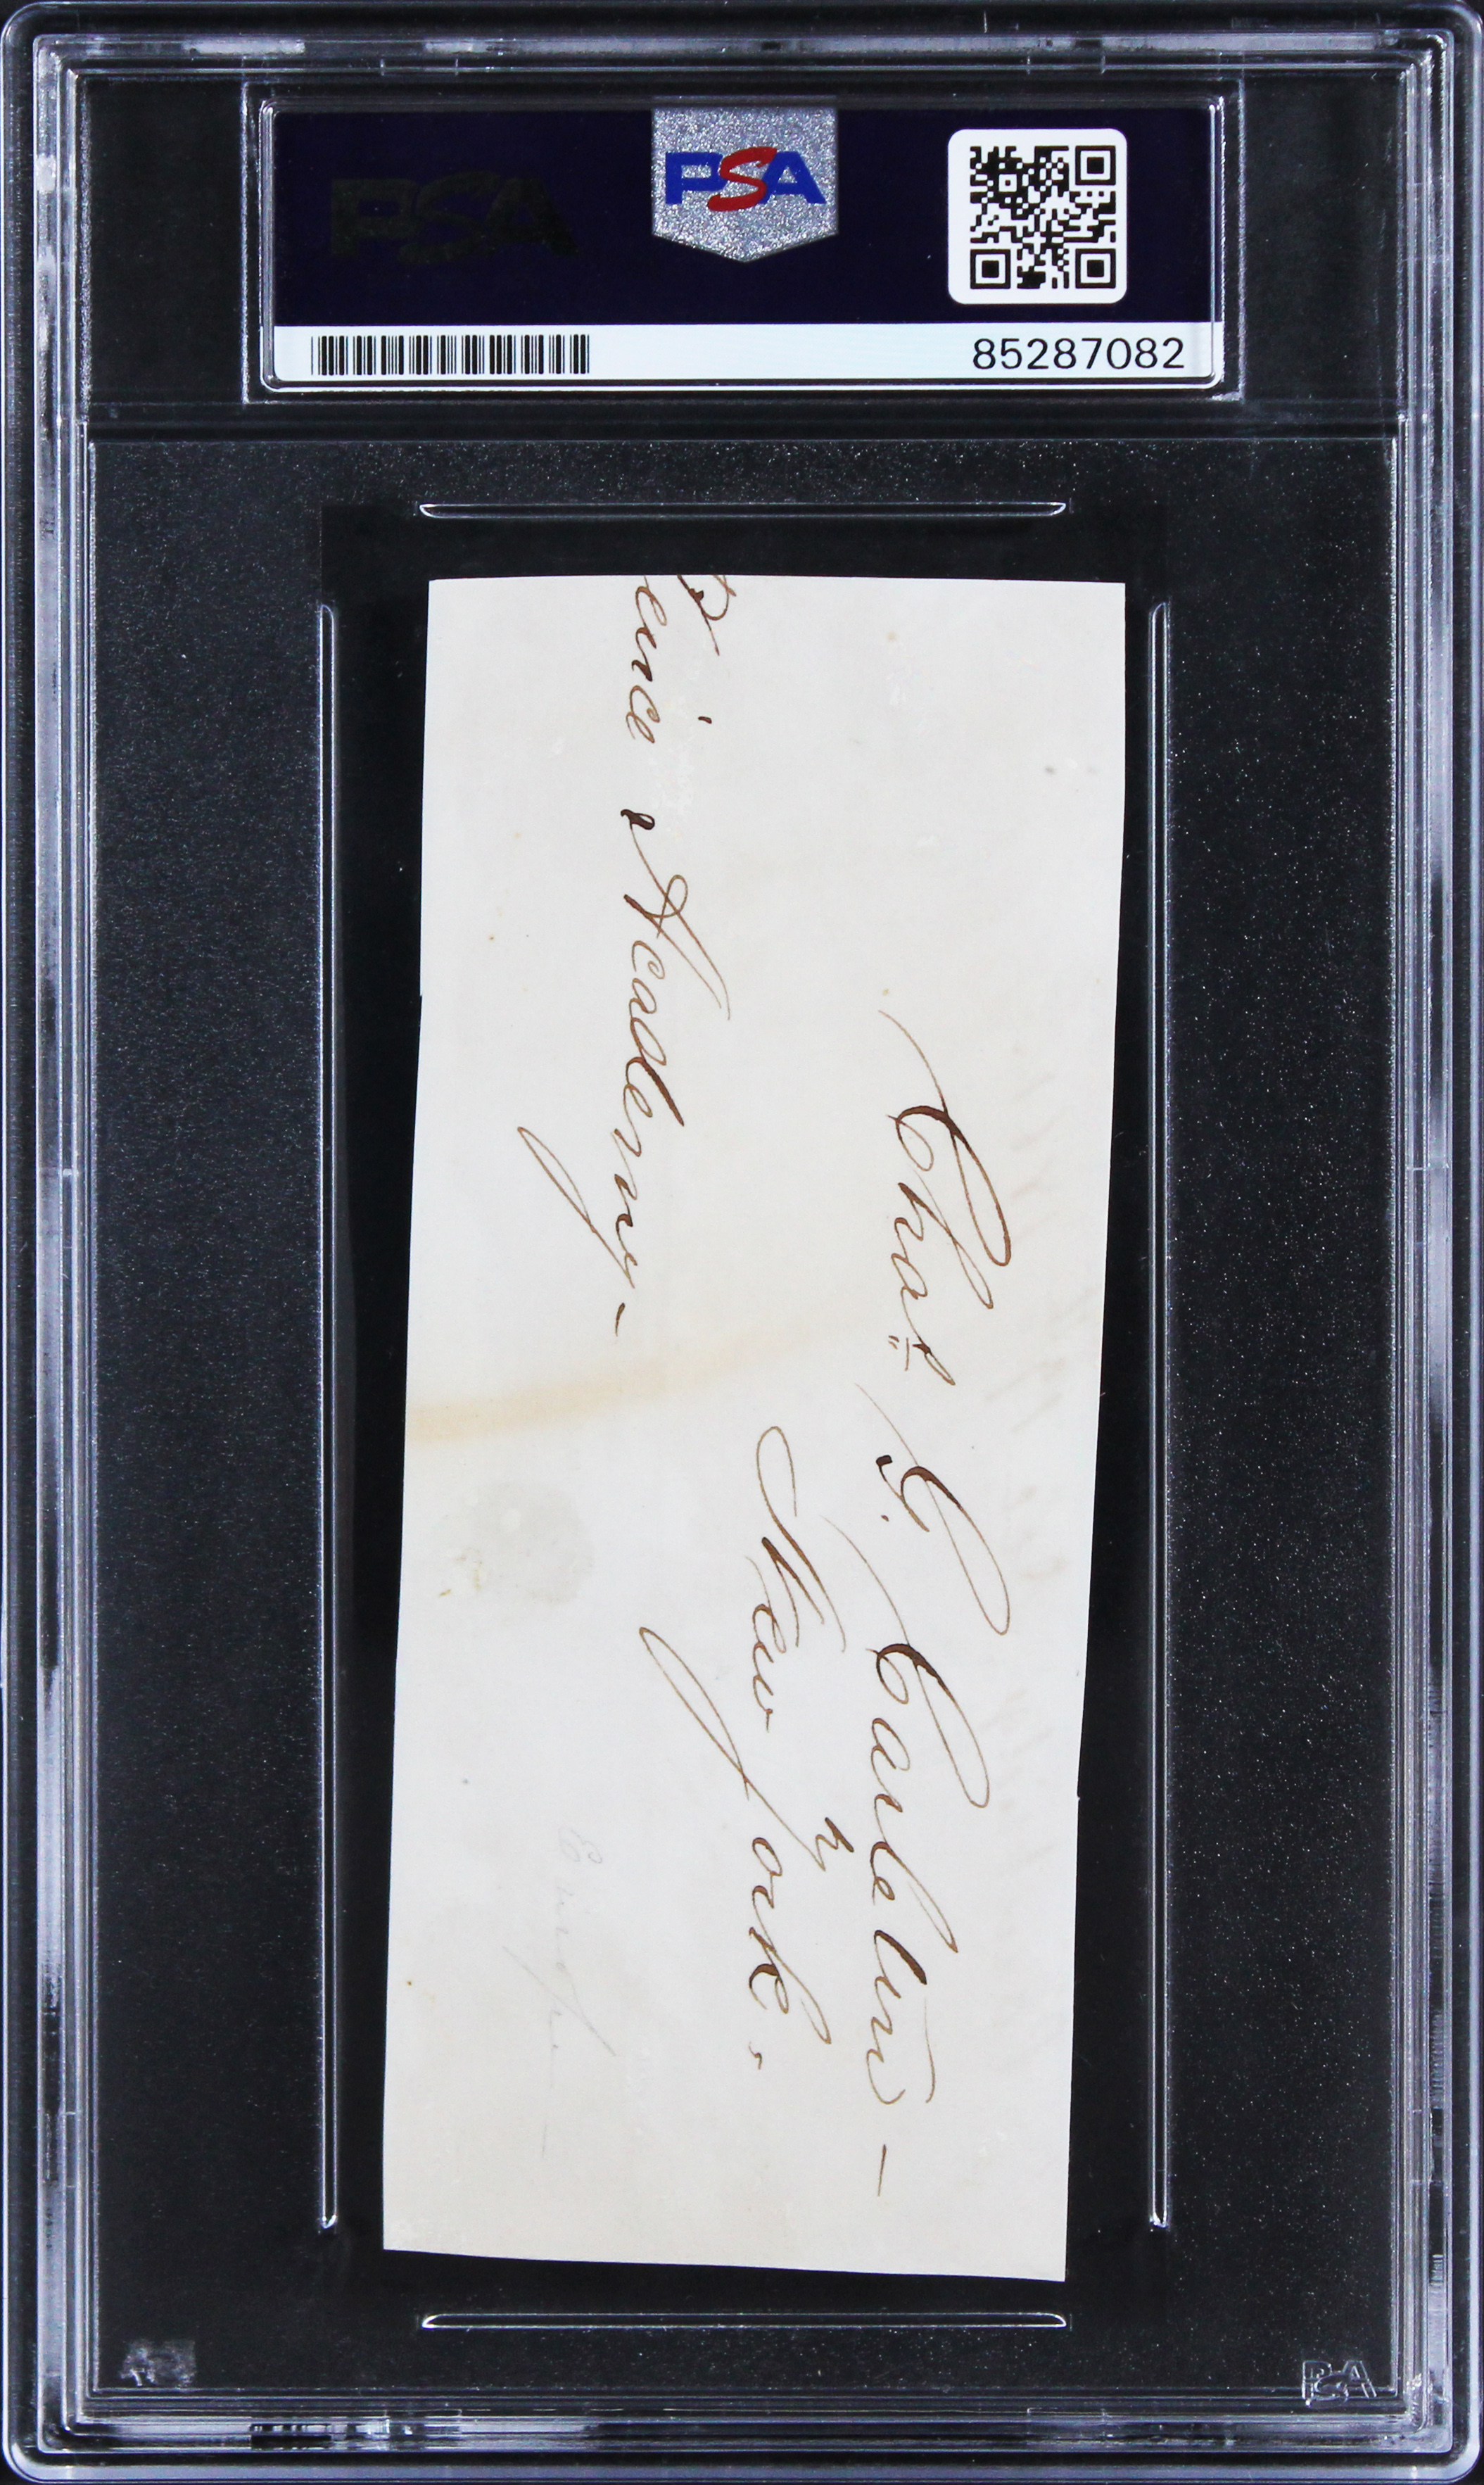 PSA
PSA
85287082
Chas G. Carleton –
New York.
ence Academy –
PSA